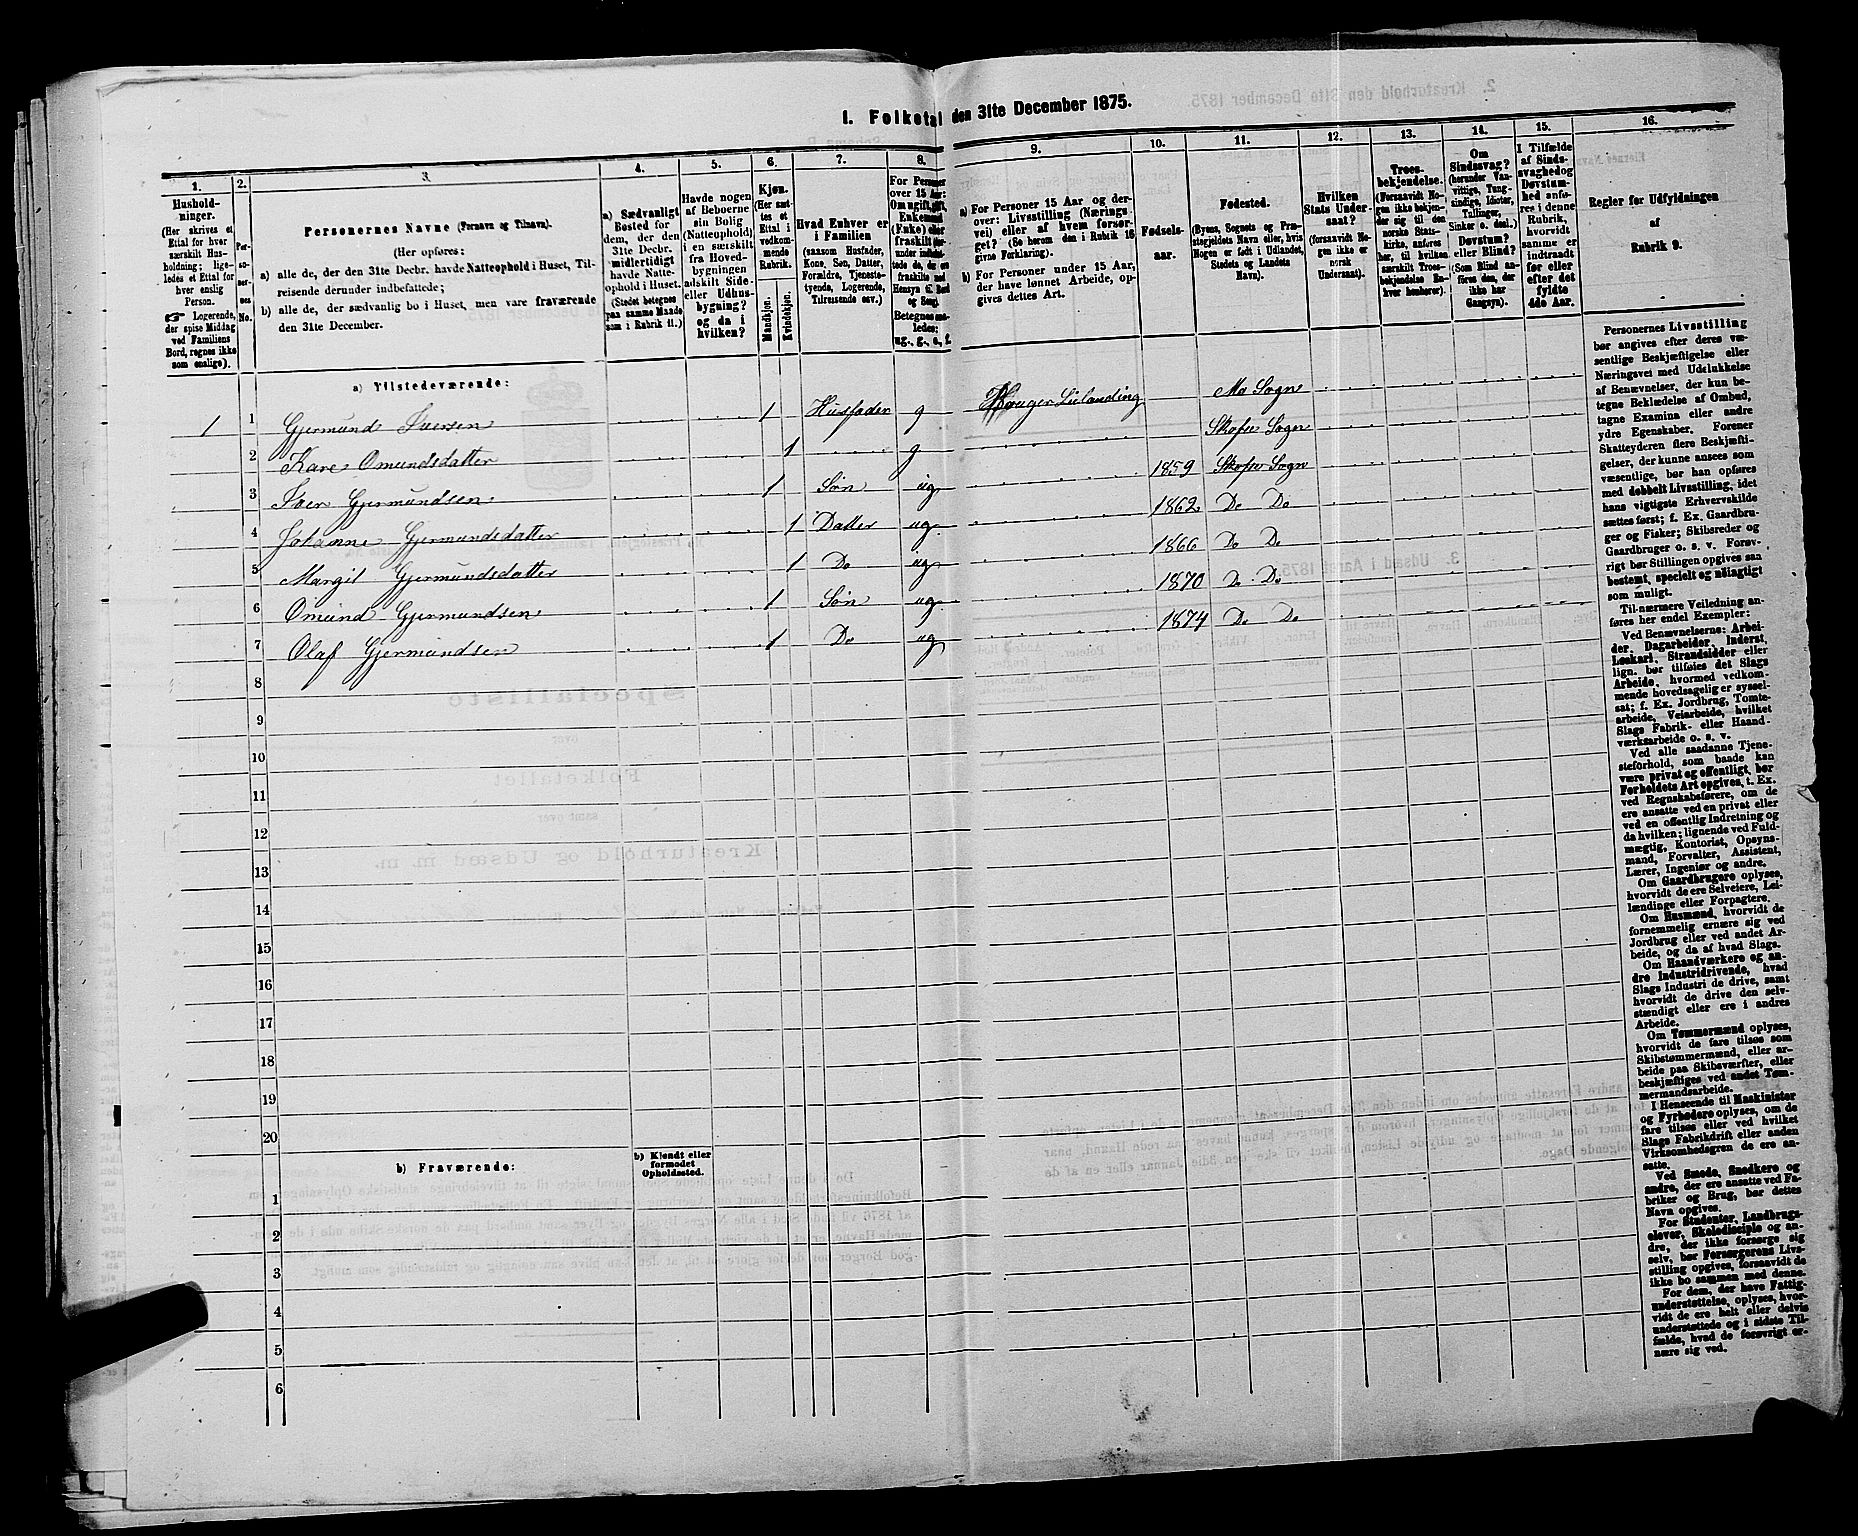 I. Folketal den 31te December 1875.
1.
2.
3.
4.
5.
6.
7.
8.
9.
10.
11.
12.
13.
14.
15.
16.
Hushold-
ninger.
(Her skrives et
Ettal for hver
særskilt Hus-
holdning; lige-
ledes et Ettal for
hver enslig
Person.
☞ Logerende,
der spise Middag
ved Familiens
Bord, regnes ikke
som enslige).
Per-
so-
ner-
nes
No.
Personernes Navne (Fornavn og Tilnavn).
(Her opføres:
a) alle de, der den 31te Decbr. havde Natteophold i Huset, Til-
reisende derunder indbefattede;
b) alle de, der sædvanlig bo i Huset, men vare fraværende
den 31te December.
a) Sædvanligt
Bosted for
dem, der den
31te Decbr.
midlertidigt
havde Natte-
ophold i Huset.
(Stedet betegnes
paa samme Maade
som i Rubrik 11.)
Havde nogen
af Beboerne
sin Bolig
(Natteophold)
i en særskilt
fra Hoved-
bygningen
adskilt Side-
eller Udhus-
bygning?
og da i
hvilken?
Kjøn.
(Her sæt-
tes et
Ettal i
vedkom-
mende
Rubrik.
Mandkjøn.
Kvindekjøn.
Hvad Enhver er
i Familien
(saasom Husfader,
Kone, Søn, Datter,
Forældre, Tjeneste-
tyende, Logerende,
Tilreisende osv.)
For Personer
over 15 Aar:
Om ugift, gift,
Enkemand
(Enke) eller
fraskilt
Betegnes saa-
ledes:
ug., g., e., f.
a) For Personer 15 Aar og der-
over: Livsstilling (Nærings-
vei) eller af hvem forsør-
get? (Se herom den i Rubrik 16
givne Forklaring).
b) For Personer under 15 Aar,
der have lønnet Arbeide, op-
gives dettes Art.
Fødsels-
aar.
Fødested.
(Byens, Sognets og Præ-
stegjeldets Navn eller, hvis
Nogen er født i Udlandet,
Stedets og Landets
Navn).
Hvilken
Stats Under-
saat?
(forsaavidt No-
gen ikke er
norsk
Undersaat).
Troes-
bekjendelse.
(Forsaavidt No-
gen ikke bekjen-
der sig til den
norske Stats-
kirke, anføres
her, til hvilken
særskilt Troes-
bekjendelse En-
hver henhører).
Om
Sindssvag?
(herunder Van-
vittige, Tung-
sindige, Idioter,
Tullinger,
Sinker o. desl.)
Døvstum?
eller Blind?
(Som Blind an-
føres den, der
ikke har
Gangsyn).
I Tilfælde
af Sinds-
svaghed og
Døvstum-
hed anfø-
res i denne
Rubrik,
hvorvidt
samme er
indtraadt
før eller
efter det
fyldte
4de Aar.
Regler for Udfyldningen
af
Rubrik 9.
a) Tilstedeværende:
1 1 Gjermund Iversen 1 Husfader g Leilending Mo Sogn
2 Kari Omundsdatter 1 g Skafse Sogn
3 Iver Gjermundsen 1 Søn ug 1859 Skafse Sogn
4 Johanne Gjermundsdatter 1 Datter ug 1862 Do Do
5 Margit Gjermundsdatter 1 Do ug 1866 Do Do
6 Omund Gjermundsen 1 Søn ug 1870 Do Do
7 Olaf Gjermundsen 1 Do ug 1874 Do Do
8
9
10
11
12
13
14
15
16
17
18
19
20
b) Fraværende:
b) Kjendt eller
formodet
Opholdssted.
1
2
3
4
5
6
Personernes Livsstilling
bør angives efter deres væ-
sentlige Beskjæftigelse eller
Næringsvei med Udelukkelse
af Benævnelser, der kun be-
tegne Beklædelse af Ombud,
tagne Examina eller andre
ydre Egenskaber. Forener
Skatteyderen flere Beskjæfti-
gelser, der kunne ansees som
væsentlige, bør han opføres
med dobbelt Livsstilling, idet
hans vigtigste Erhvervskilde
sættes først; f. Ex. Gaardbru-
ger og Fisker; Skibsreder og
Gaardbruger o. s. v. Forøv-
rigt bør Stillingen opgives saa
bestemt, specielt og nøiagtigt
som muligt.
Til nærmere Veiledning an-
føres her endel Exempler:
Ved Benævnelserne: Arbei-
der, Dagarbeider, Inderst,
Løskarl, Strandsidder eller
lign. bør tilføies det Slags
Arbeide, hvormed vedkom-
mende hovedsagelig er syssel-
sat; f. Ex. Jordbrug, Tomte-
arbeide, Veiarbeide, hvilket
Slags Fabrik- eller Haand-
værksarbeide o. s. v.
Ved alle saadanne Tjene-
steforhold, som baade kan
være privat og offentligt, bør
Forholdets Art opgives, t. Ex.
ved Regnskabsførere, om de
ere ansatte ved en privat eller
ved en offentlig Indretning og
da hvilken; lignende ved Fuld-
mægtig, Kontorist, Opsyns-
mand, Forvalter, Assistent,
Lærer, Ingeniør og andre.
Om Gaardbrugere oplyses,
hvorvidt de ere Selveiere, Lei-
lændinge eller Forpagtere.
Om Husmænd, hvorvidt de
fornemmelig ernære sig ved
Jordbrug eller ved andet Ar-
beide, og da af hvad Slags.
Om Haandværkere og an-
dre Industridrivende, hvad
Slags Industri de drive, samt
hvorvidt de drive den selv-
stændigt eller ere i andres
Arbeide.
Om Tømmermænd oplyses,
hvorvidt de fare tilsøs som
Skibstømmermænd, eller ar-
beide paa Skibsværfter, eller
beskjæftiges ved andet Tøm-
mermandsarbeide.
I Henseende til Maskinister
og Fyrbødere oplyses, om de
fare tilsøs eller ved hvilket
Slags Fabrikdrift eller anden
Virksomhedsgren de ere an-
satte.
Ved Smede, Snedkere og
andre, der ere ansatte ved Fa-
briker og Brug, bør dettes
Navn opgives.
For Studenter, Landbrugs-
elever, Skoledisciple og an-
dre, der ikke forsørge sig
selv, bør Forsørgerens Livs-
stilling opgives, forsaavidt de
ikke bo sammen med denne.
For dem, der have Fattig-
understøttelse, oplyses, hvor-
vidt de ere helt eller delvis
understøttede og i sidste Til-
fælde, hvad de forøvrigt er-
nære sig ved.